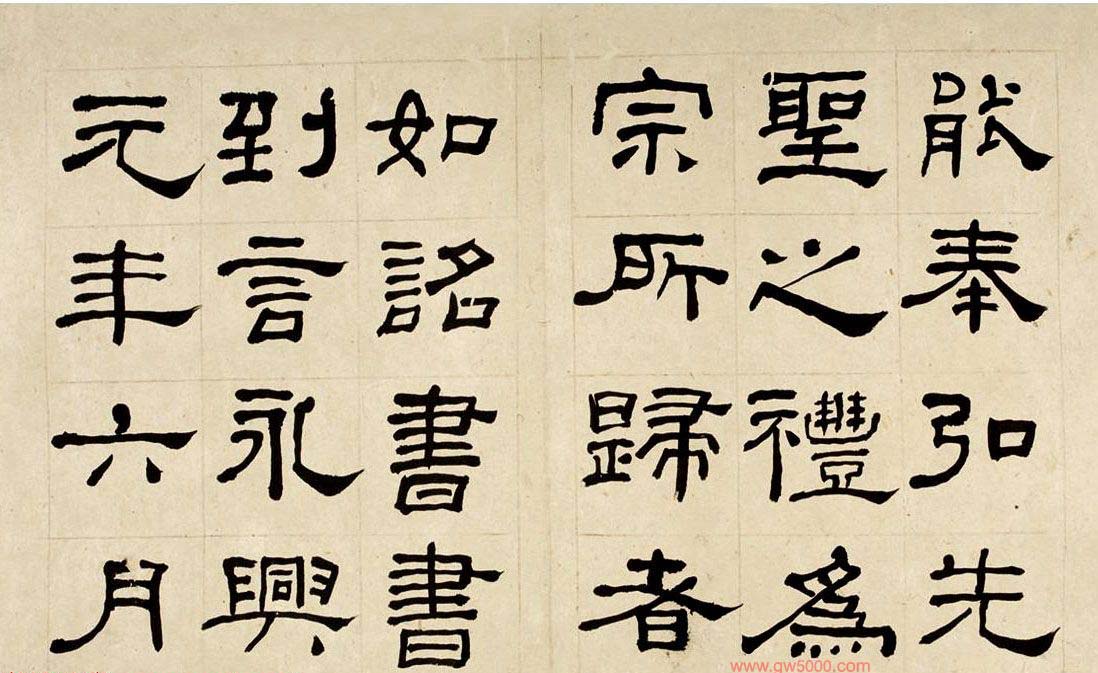 能奉弘先
聖之禮為
宗所歸者
如詔書書
到言永興
元年六月
www.gw5000.com